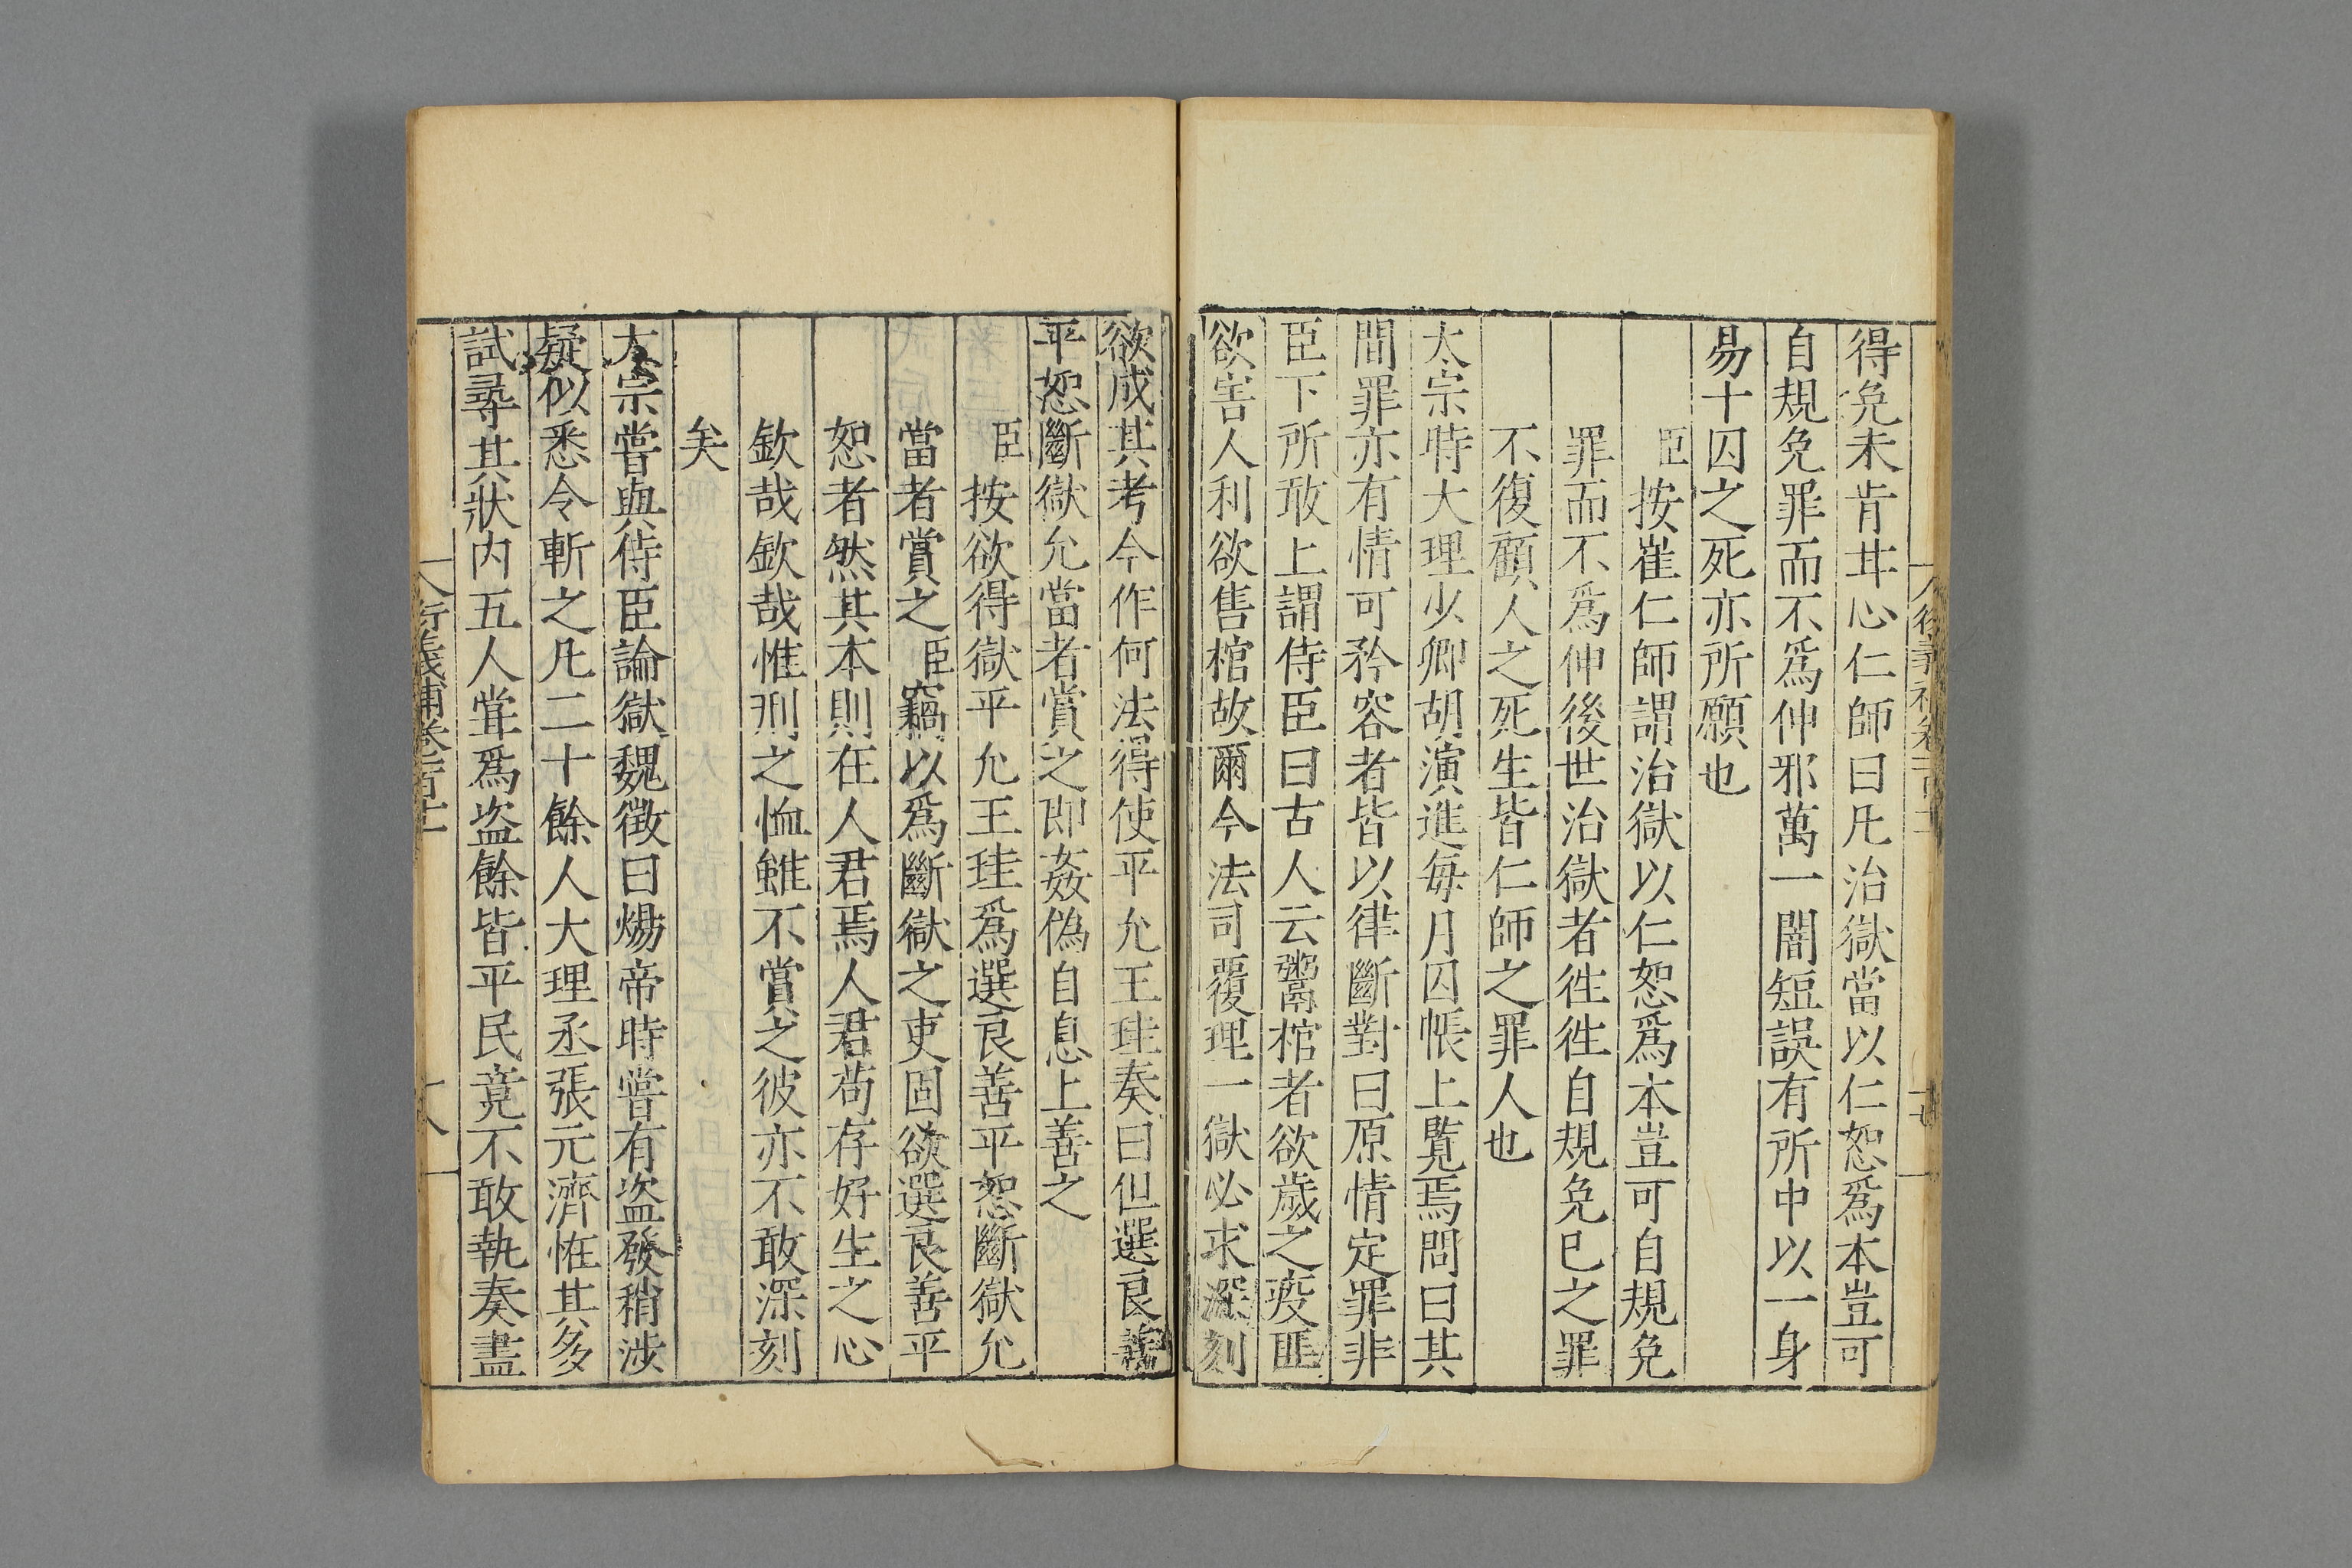 得免未肯甘心仁師曰凡治獄當以仁恕爲本豈可
自規免罪而不爲伸邪萬一闇短誤有所中以一身
易十囚之死亦所願也
臣按崔仁師謂治獄以仁恕爲本豈可自規免
罪而不爲伸後世治獄者徃徃自規免巳之罪
不復顧人之死生皆仁師之罪人也
太宗時大理少卿胡演進每月囚帳上覧焉問曰其
間罪亦有情可矜容者皆以律斷對曰原情定罪非
臣下所敢上謂侍臣曰古人云鬻棺者欲歲之疫匪
欲害人利欲售棺故爾今法司覆理一獄必求深刻
欲成其考今作何法得使平允王珪奏曰但選良善
平恕斷獄允當者賞之即姦偽自息上善之
臣按欲得獄平允王珪爲選良善平恕斷獄允
當者賞之臣竊以爲斷獄之吏固欲選良善平
恕者然其本則在人君焉人君苟存好生之心
欽哉欽哉惟刑之恤雖不賞之彼亦不敢深刻
矣
太宗嘗與侍臣論獄魏徵曰煬帝時嘗有盗發稍涉
疑似悉令斬之凡二十餘人大理丞張元濟怪其多
試尋其狀内五人嘗爲盗餘皆平民竟不敢執奏盡
衍義補卷一百十二